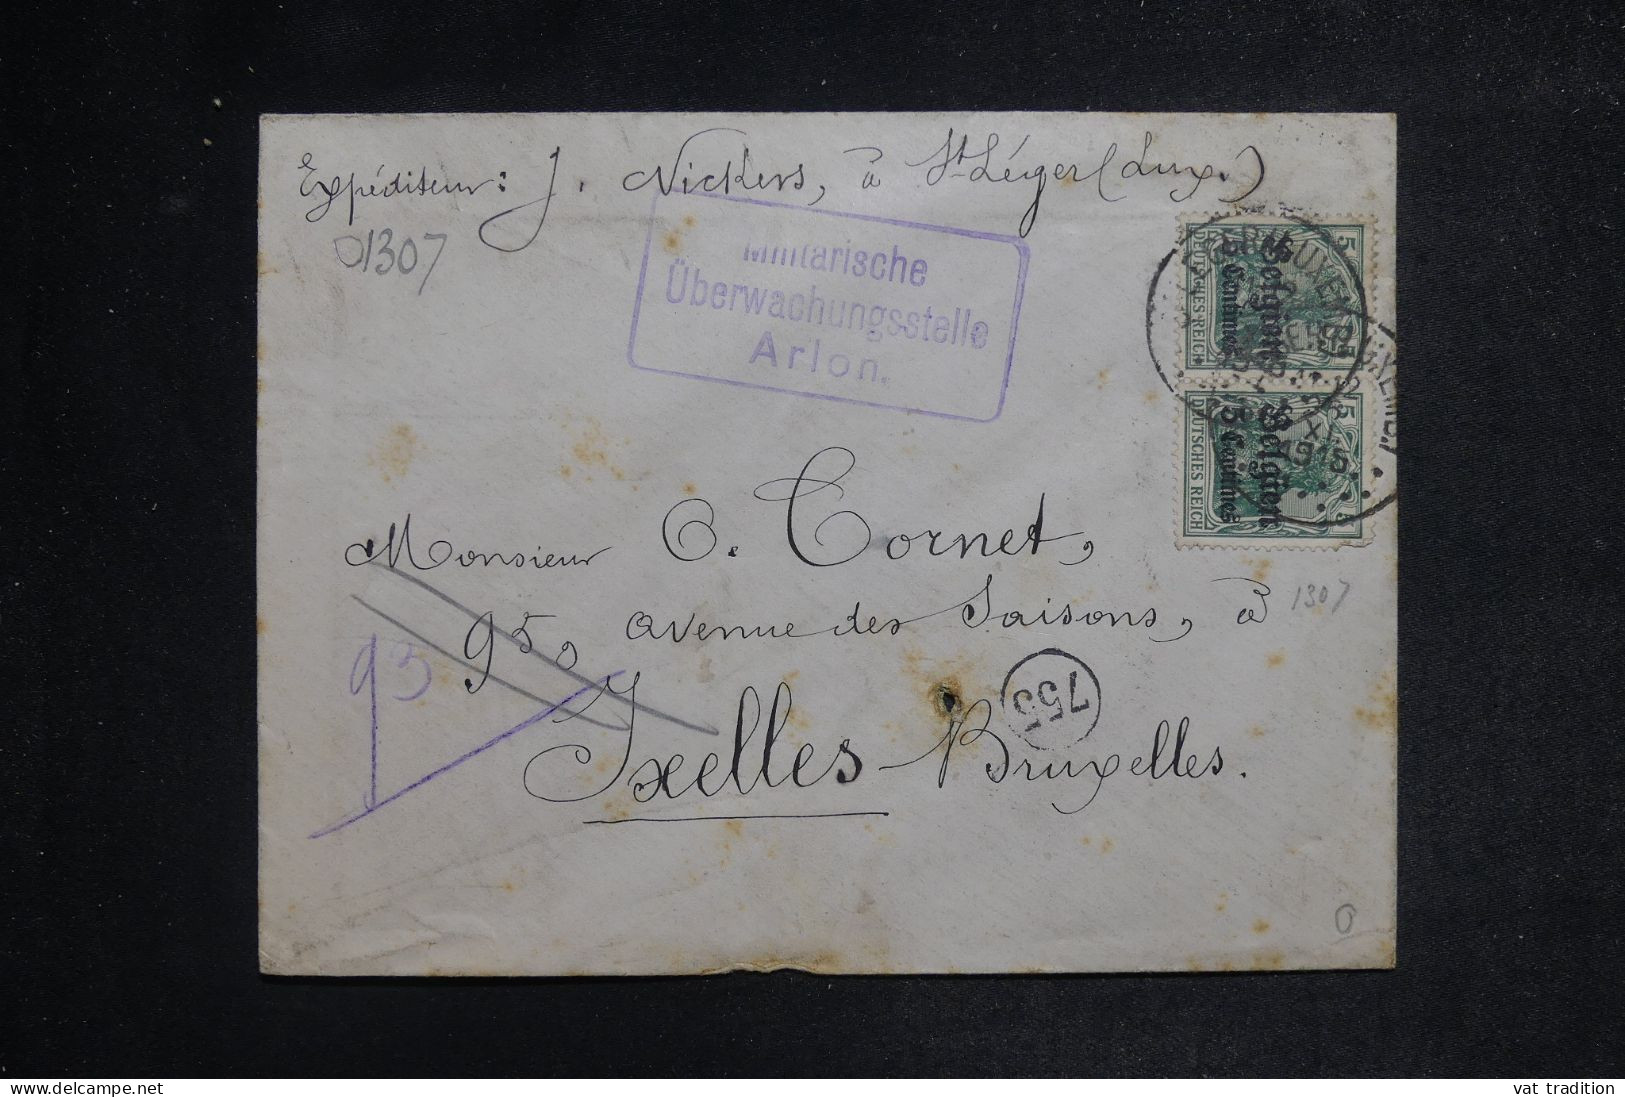 Expéditeur: J. Nickers, à St Léger (Lux.)
01307
Militärische
Überwachungsstelle
Arlon.
DEUTSCHES REICH
Belgien
5 Centimes
DEUTSCHES REICH
Belgien
5 Centimes
Monsieur C. Cornet,
95, avenue des Saisons, à
1307
93
755
Ixelles - Bruxelles.
www.delcampe.net
vat tradition